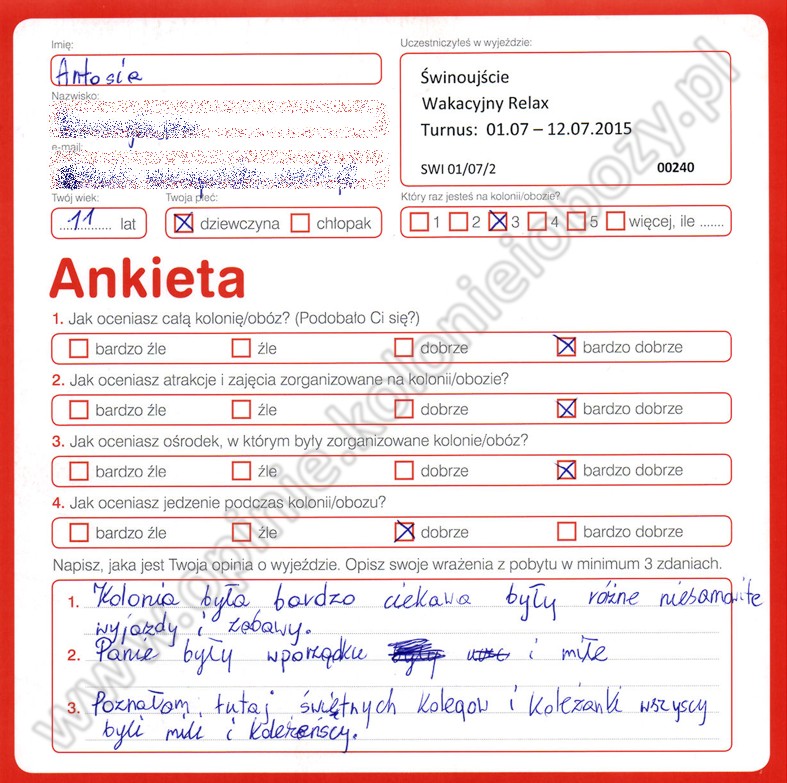 Imię:
Antosia
Uczestniczyłeś w wyjeździe:
Świnoujście
Wakacyjny Relax
Turnus: 01.07 – 12.07.2015
SWI 01/07/2 00240
Nazwisko:
e-mail:
Twój wiek:
11 lat
Twoja płeć:
dziewczyna chłopak
Który raz jesteś na kolonii/obozie?
1 2 3 4 5 więcej, ile .......
Ankieta
1. Jak oceniasz całą kolonię/obóz? (Podobało Ci się?)
bardzo źle źle dobrze bardzo dobrze
2. Jak oceniasz atrakcje i zajęcia zorganizowane na kolonii/obozie?
bardzo źle źle dobrze bardzo dobrze
3. Jak oceniasz ośrodek, w którym były zorganizowane kolonie/obóz?
bardzo źle źle dobrze bardzo dobrze
4. Jak oceniasz jedzenie podczas kolonii/obozu?
bardzo źle źle dobrze bardzo dobrze
Napisz, jaka jest Twoja opinia o wyjeździe. Opisz swoje wrażenia z pobytu w minimum 3 zdaniach.
1. Kolonia była bardzo ciekawa były różne niesamowite
wyjazdy i zabawy.
2. Panie były wporządku i miłe
3. Poznałam tutaj świętnych kolegow i koleżanki wszyscy
byli mili i koleżeńscy.
www.opinie.kolonieiobozy.pl